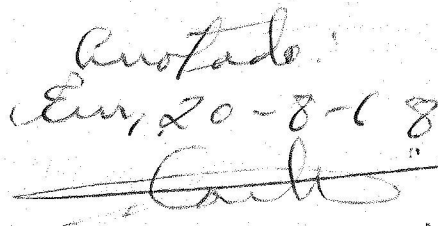 Anotado:
Em, 20-8-68